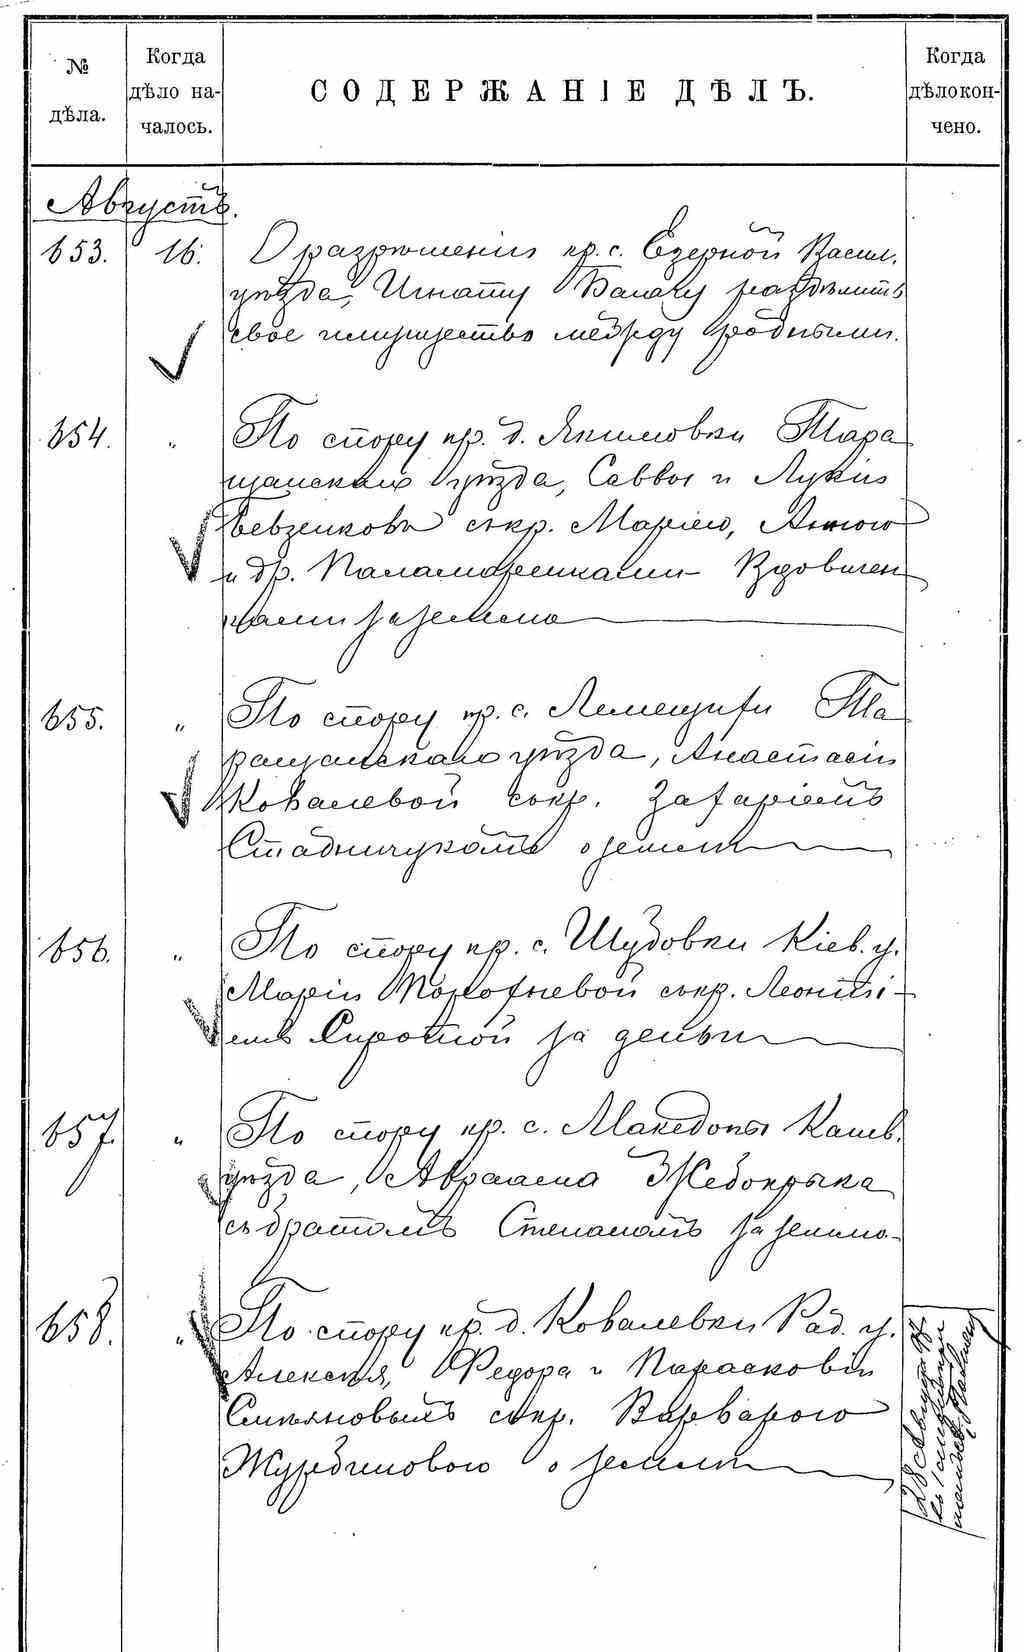 № дѣла.
Когда дѣло началось.
СОДЕРЖАНІЕ ДѢЛЪ.
Когда дѣло кончено.
Августъ.
653. 16. О разрѣшеніи кр. с. Езерной Васил.
уѣзда, Игнату Балагу раздѣлить
свое имущество между родными.
654. " По спору кр. д. Якимовки Тара
щанскаго уѣзда, Саввы и Лукіи
Бевзенковъ съ кр. Маріею, Анною
и др. Паламаренками Вдовичен
ками за землю
655. " По спору кр. с. Лемещихи Та
ращанскаго уѣзда, Анастасіи
Ковалевой съ кр. Захаріемъ
Стадничукомъ о землѣ
656. " По спору кр. с. Шудовки Кіев. у.
Маріи съ кр. Леонті-
емъ Сиротой за деньги
657. " По спору кр. с. Македоны Канев.
уѣзда, Авраама Жебокрыка
съ братомъ Степаномъ за землю.
658. " По спору кр. д. Ковалевки Рад. у.
Алексѣя, Федора и Парасковіи
Емѣльяновыхъ съ кр. Варварою
о землѣ
28 Августа 98